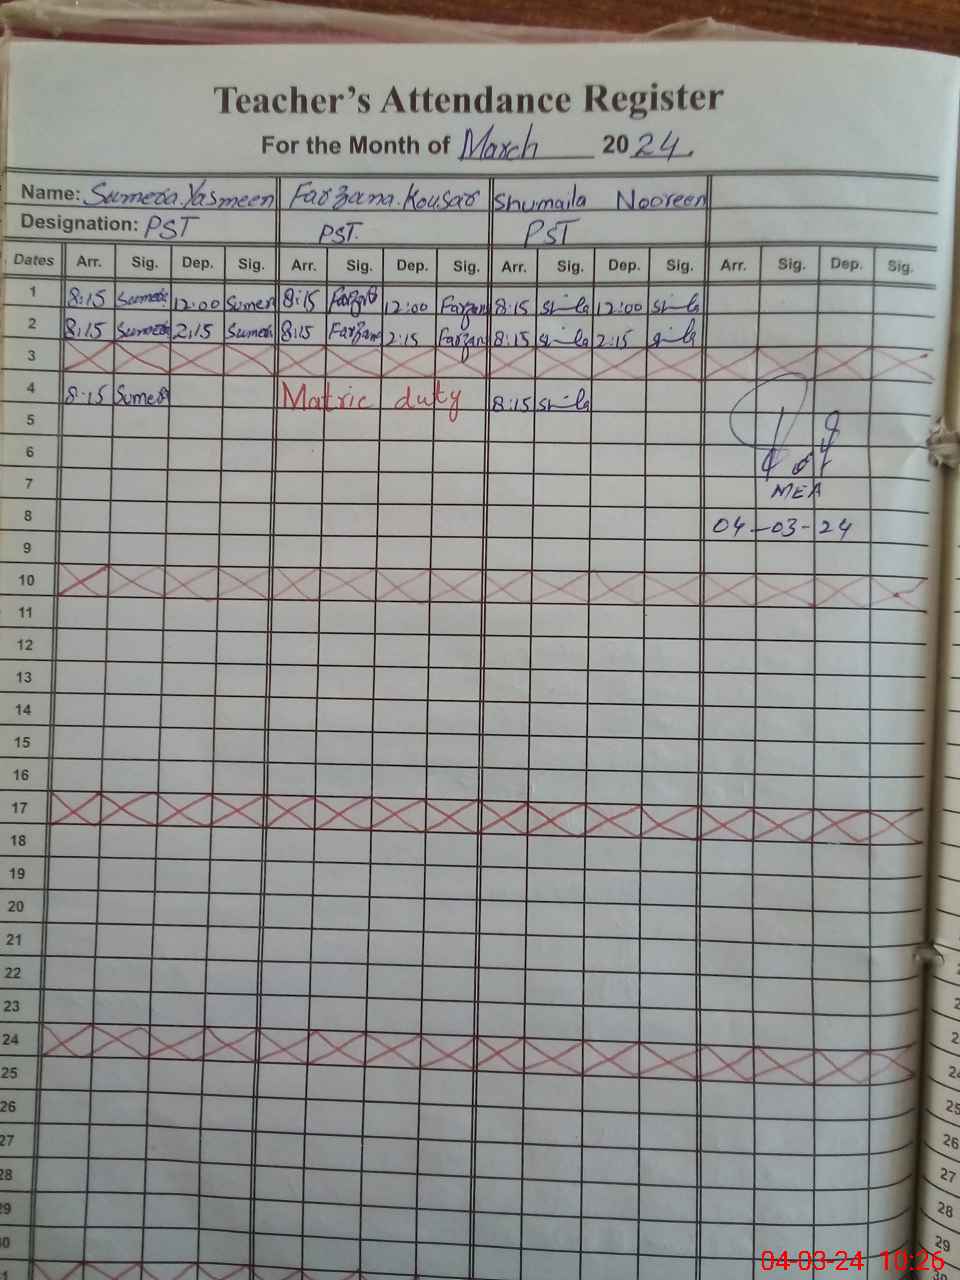 Teacher's Attendance Register
For the Month of March 2024.
Name: Sumera Yasmeen Farzana Kousar Shumaila Nooreen
Designation: PST PST. PST
Dates Arr. Sig. Dep. Sig. Arr. Sig. Dep. Sig. Arr. Sig. Dep. Sig. Arr. Sig. Dep. Sig.
1 8:15 12:00 8:15 12:00 8:15 12:00
2 8:15 2:15 8:15 2:15 8:15 2:15
3
4 8:15 Matric duty 8:15
5
6
7 MEA
8 04-03-24
9
10
11
12
13
14
15
16
17
18
19
20
21
22
23
24
25
26
27
28
29
30
04-03-24 10:26